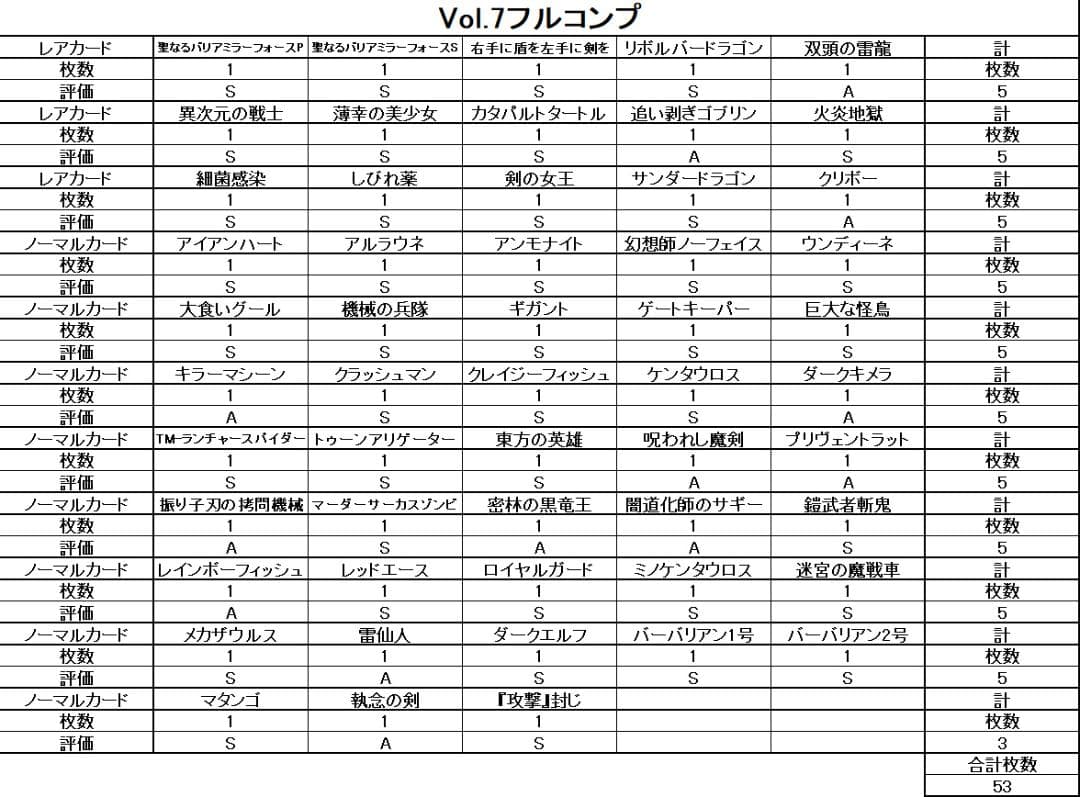 Vol.7フルコンプ
レアカード 聖なるバリアミラーフォースP 聖なるバリアミラーフォースS 右手に盾を左手に剣を リボルバードラゴン 双頭の雷龍 計
枚数 1 1 1 1 1 枚数
評価 S S S S A 5
レアカード 異次元の戦士 薄幸の美少女 カタパルトタートル 追い剥ぎゴブリン 火炎地獄 計
枚数 1 1 1 1 1 枚数
評価 S S S A S 5
レアカード 細菌感染 しびれ薬 剣の女王 サンダードラゴン クリボー 計
枚数 1 1 1 1 1 枚数
評価 S S S S A 5
ノーマルカード アイアンハート アルラウネ アンモナイト 幻想師ノーフェイス ウンディーネ 計
枚数 1 1 1 1 1 枚数
評価 S S S S S 5
ノーマルカード 大食いグール 機械の兵隊 ギガント ゲートキーパー 巨大な怪鳥 計
枚数 1 1 1 1 1 枚数
評価 S S S S S 5
ノーマルカード キラーマシーン クラッシュマン クレイジーフィッシュ ケンタウロス ダークキメラ 計
枚数 1 1 1 1 1 枚数
評価 A S S S A 5
ノーマルカード TM-ランチャースパイダー トゥーンアリゲーター 東方の英雄 呪われし魔剣 プリヴェントラット 計
枚数 1 1 1 1 1 枚数
評価 S S S A A 5
ノーマルカード 振り子刃の拷問機械 マーダーサーカスゾンビ 密林の黒竜王 闇道化師のサギー 鎧武者斬鬼 計
枚数 1 1 1 1 1 枚数
評価 A S A A S 5
ノーマルカード レインボーフィッシュ レッドエース ロイヤルガード ミノケンタウロス 迷宮の魔戦車 計
枚数 1 1 1 1 1 枚数
評価 A S S S S 5
ノーマルカード メカザウルス 雷仙人 ダークエルフ バーバリアン1号 バーバリアン2号 計
枚数 1 1 1 1 1 枚数
評価 S A S S S 5
ノーマルカード マタンゴ 執念の剣 『攻撃』封じ 計
枚数 1 1 1 枚数
評価 S A S 3
合計枚数
53